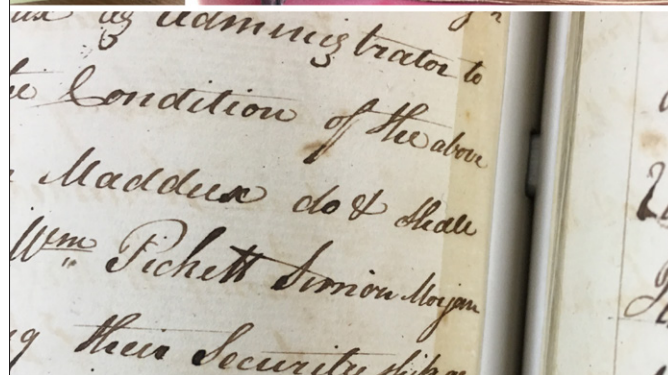 as administrator to
Condition of the above
Maddux do & shall
Wm Pickett Simon Morgan
their Security